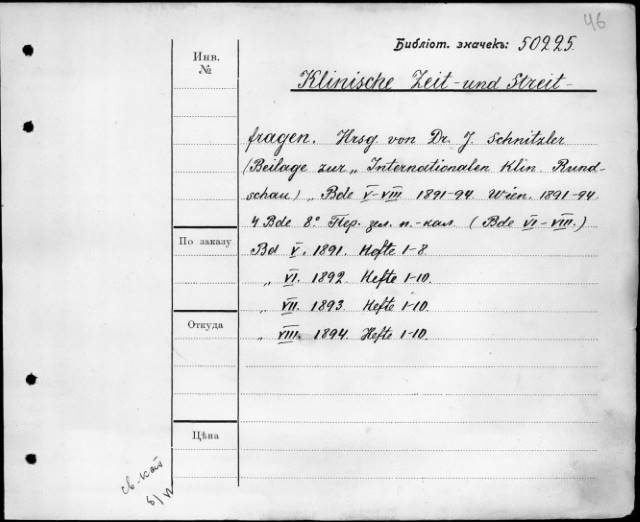 46
Библіот. значекъ: 50225.
Инв.
№
Klinische Zeit- und Streit-
fragen. Hrsg. von Dr. J. Schnitzler
(Beilage zur „Internationalen Klin. Rund-
schau) „ Bde V-VIII 1891-94. Wien. 1891-94.
4 Bde 8° Пер. зел. п.-кал. (Bde VI-VIII.)
По заказу
Bd V. 1891. Hefte 1-8.
„ VI. 1892. Hefte 1-10.
„ VII. 1893. Hefte 1-10.
Откуда
„ VIII. 1894. Hefte 1-10.
Цѣна
св-кат